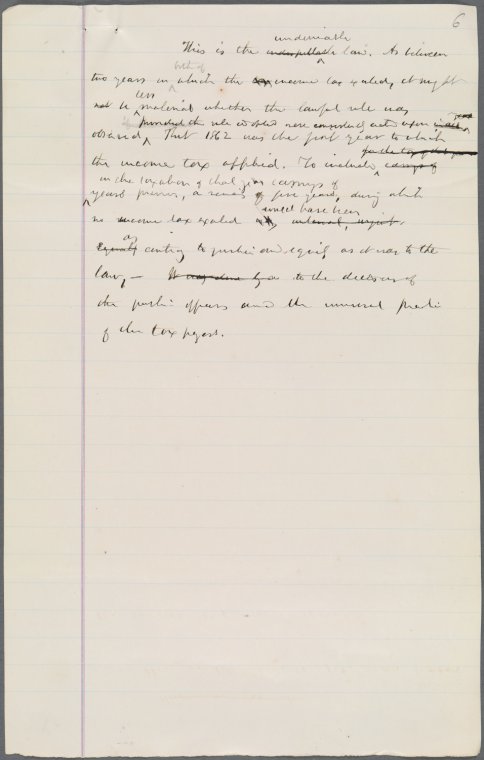 6
undeniable
This is the law. As between
both of
two years in which the income tax existed, it might
less
not be material whether the lawful rule was
provided the rule adopted were consistently acted upon in
observed, That 1862 was the first year to which
the income tax applied. To include
in the taxation of that year earnings of
years previous, a series of five years, during which
would have been
no income tax existed
as contrary to justice and equity as it was to the
law, — to the decision of
the public officers and the universal practice
of the tax payers.